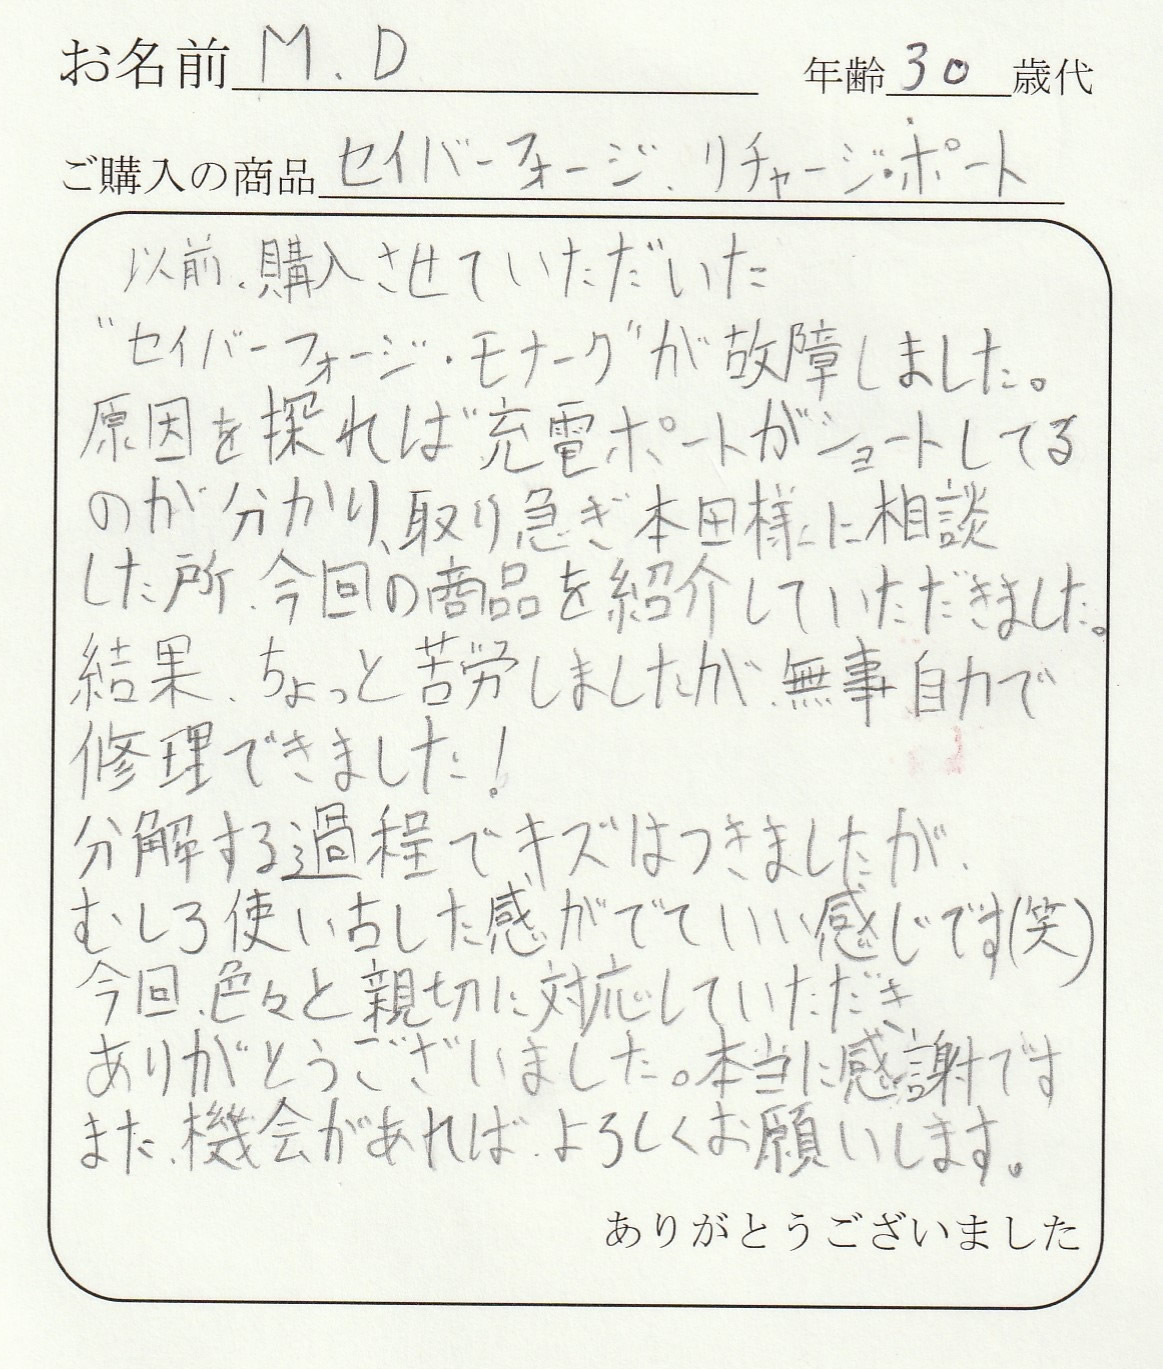 お名前 M.D 年齢 30 歳代
ご購入の商品 セイバーフォージ、リチャージ・ポート
以前、購入させていただいた
"セイバーフォージ・モナーク"が故障しました。
原因を探れば充電ポートがショートしてる
のが分かり、取り急ぎ本田様に相談
した所、今回の商品を紹介していただきました。
結果、ちょっと苦労しましたが、無事自力で
修理できました!
分解する過程で、キズはつきましたが、
むしろ使い古した感がでていい感じです(笑)
今回、色々と親切に対応していただき
ありがとうございました。本当に感謝です
また、機会があれば、よろしくお願いします。
ありがとうございました